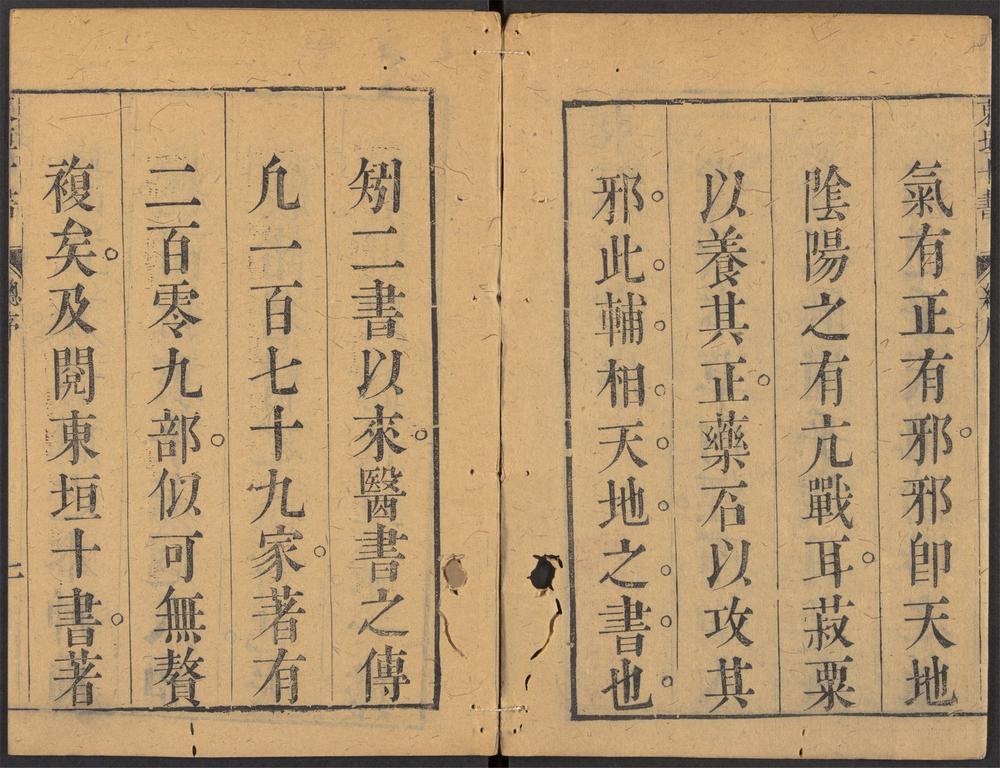 氣有正有邪邪卽天地
陰陽之有亢戰耳菽粟
以養其正藥石以攻其
邪此輔相天地之書也
矧二書以來醫書之傳
凡一百七十九家著有
二百零九部似可無贅
複矣及閱東垣十書著
東垣十書
總序
二